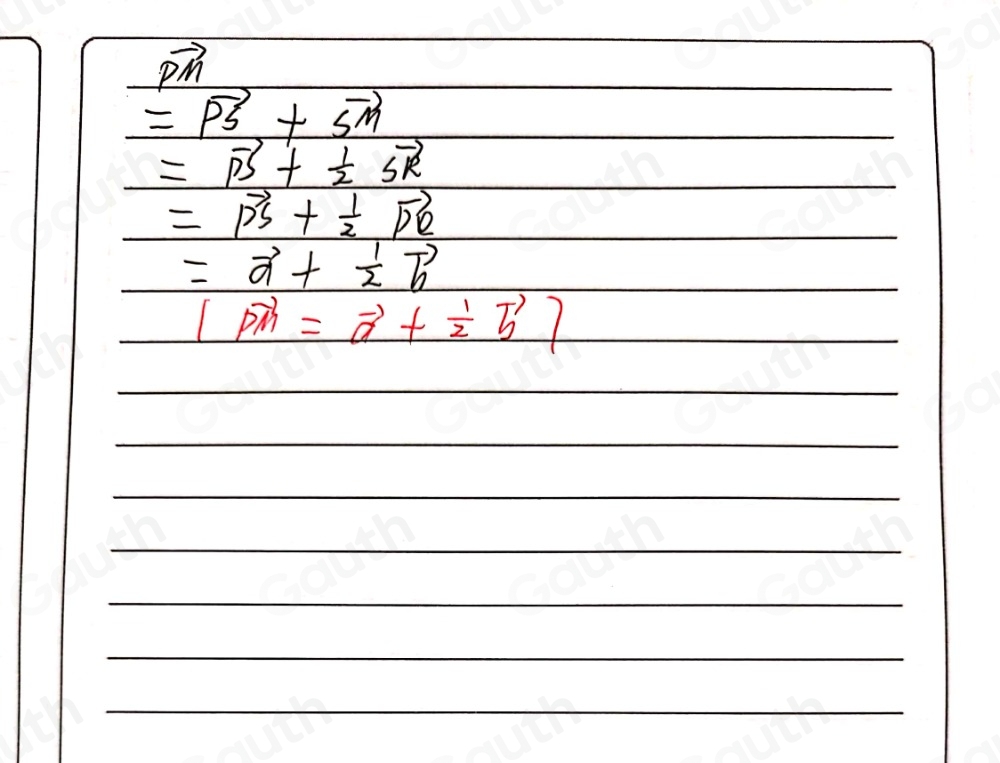 \overrightarrow{PM}
= \overrightarrow{PS} + \overrightarrow{SM}
= \overrightarrow{PS} + \frac{1}{2} \overrightarrow{SR}
= \overrightarrow{PS} + \frac{1}{2} \overrightarrow{PQ}
= \vec{a} + \frac{1}{2} \vec{b}
[ \overrightarrow{PM} = \vec{a} + \frac{1}{2} \vec{b} ]
Gauth